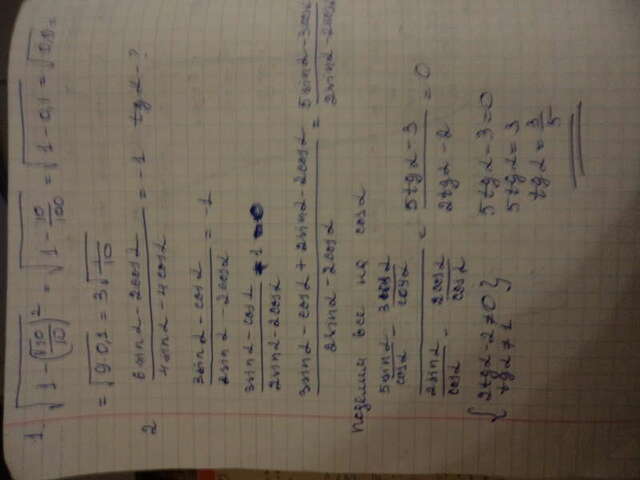 1. √(1 - (√10/10)²) = √(1 - 10/100) = √(1 - 0,1) = √0,9 =
= √(9·0,1) = 3√(1/10)
2 (6sinα - 2cosα)/(4sinα - 4cosα) = -1 tgα - ?
(3sinα - cosα)/(2sinα - 2cosα) = -1
(3sinα - cosα)/(2sinα - 2cosα) + 1 = 0
(3sinα - cosα + 2sinα - 2cosα)/(2sinα - 2cosα) = (5sinα - 3cosα)/(2sinα - 2cosα)
поделим все на cosα
(5sinα/cosα - 3cosα/cosα)/(2sinα/cosα - 2cosα/cosα) = (5tgα - 3)/(2tgα - 2) = 0
{ 2tgα - 2 ≠ 0 } 5tgα - 3 = 0
tgα ≠ 1 5tgα = 3
tgα = 3/5